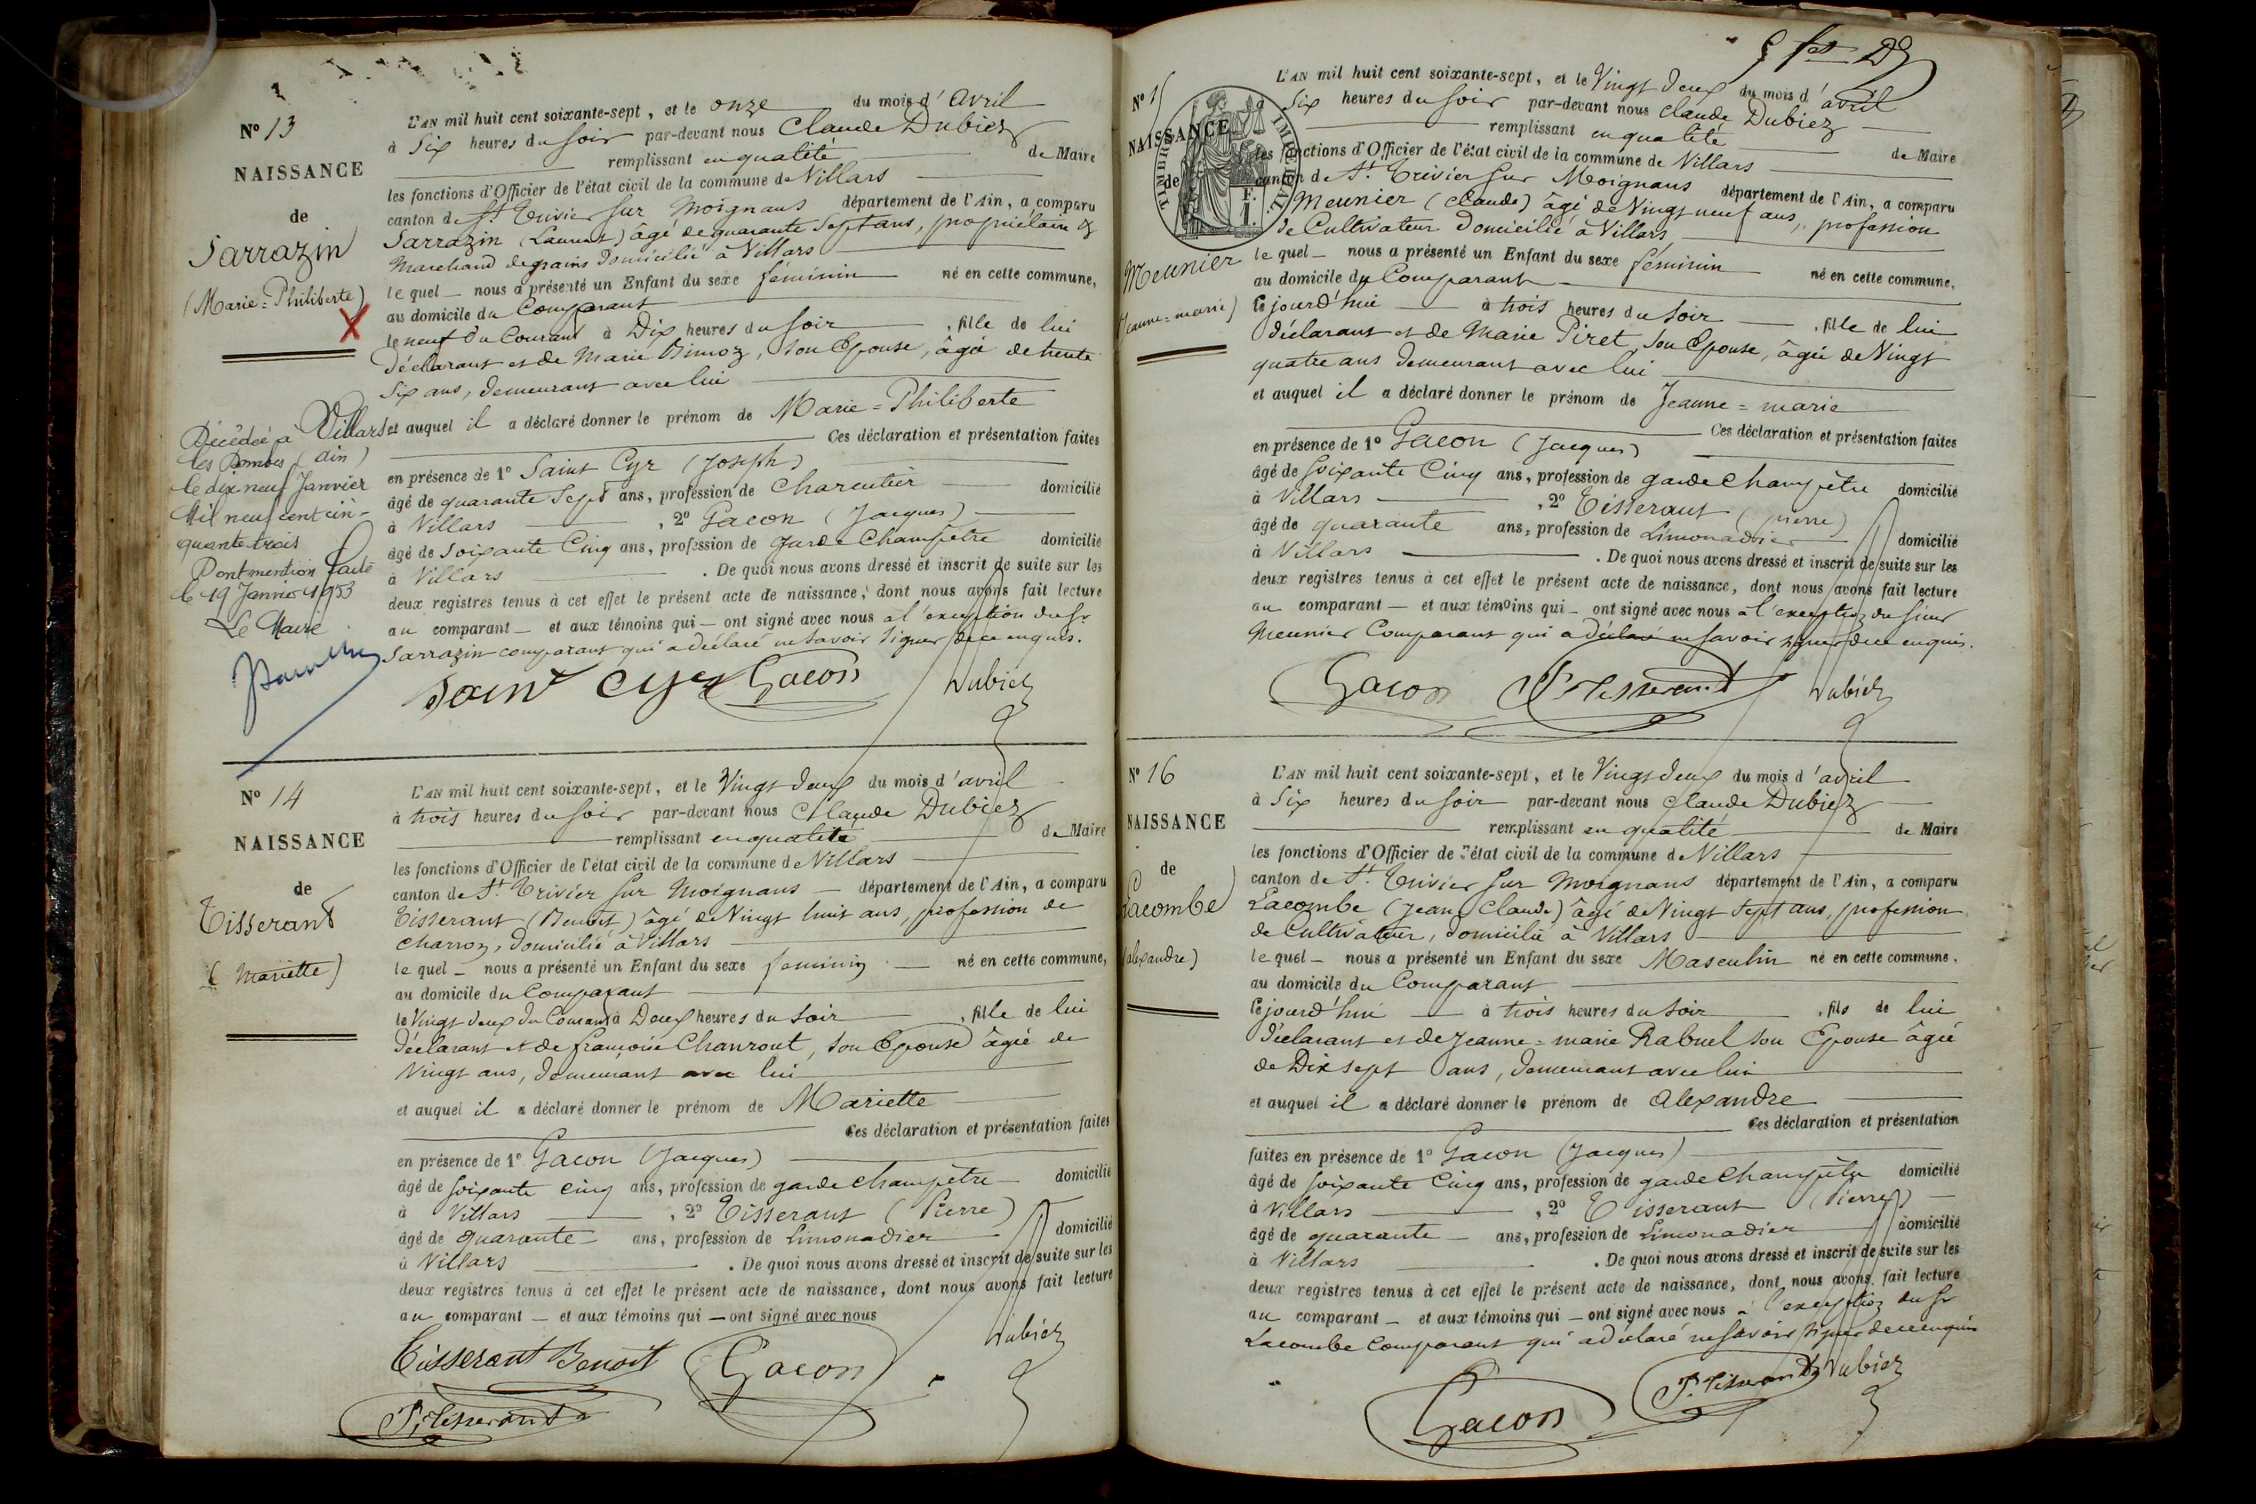 N° 13
NAISSANCE
de
Sarrazin
(Marie=Philiberte)
X
Décédée à Villars
les Dombes (Ain)
le dix neuf Janvier
Mil neuf cent cin-
quante trois
Dont mention faite
le 19 Janvier 1953
Le Maire
L'AN mil huit cent soixante-sept, et le onze du mois d'avril
à Six heures du Soir par-devant nous Claude Dubiez
remplissant en qualité de Maire
les fonctions d'Officier de l'état civil de la commune de Villars
canton de St. Trivier sur Moignans département de l'Ain, a comparu
Sarrazin (Laurent) âgé de quarante Sept ans, propriétaire &
Marchand de grains domicilié à Villars
le quel nous a présenté un Enfant du sexe féminin né en cette commune,
au domicile du Comparant
le neuf du Courant à Dix heures du Soir, fille de lui
déclarant et de Marie Bimoz, Son Epouse, âgée de trente
Six ans, demeurant avec lui
et auquel il a déclaré donner le prénom de Marie=Philiberte
Ces déclaration et présentation faites
en présence de 1° Saint Cyr (Joseph)
âgé de quarante Sept ans, profession de Charcutier domicilié
à Villars, 2° Gacon (Jacques)
âgé de Soixante Cinq ans, profession de garde Champêtre domicilié
à Villars. De quoi nous avons dressé et inscrit de suite sur les
deux registres tenus à cet effet le présent acte de naissance, dont nous avons fait lecture
au comparant et aux témoins qui ont signé avec nous à l'exception du Sr
Sarrazin comparant qui a déclaré ne Savoir Signer de ce enquis.
Saint Cyr Gacon Dubiez
N° 14
NAISSANCE
de
Tisserant
(Mariette)
L'AN mil huit cent soixante-sept, et le Vingt deux du mois d'avril
à trois heures du Soir par-devant nous Claude Dubiez
remplissant en qualité de Maire
les fonctions d'Officier de l'état civil de la commune de Villars
canton de St. Trivier sur Moignans département de l'Ain, a comparu
Tisserant (Benoit) âgé de Vingt huit ans, profession de
Charron, domicilié à Villars
le quel nous a présenté un Enfant du sexe feminin né en cette commune,
au domicile du Comparant
le Vingt deux du Courant à Deux heures du Soir, fille de lui
déclarant et de françoise Chanrout, Son Epouse âgée de
Vingt ans, demeurant avec lui
et auquel il a déclaré donner le prénom de Mariette
Ces déclaration et présentation faites
en présence de 1° Gacon (Jacques)
âgé de Soixante cinq ans, profession de garde champêtre domicilié
à Villars, 2° Tisserant (Pierre)
âgé de quarante ans, profession de Limonadier domicilié
à Villars. De quoi nous avons dressé et inscrit de suite sur les
deux registres tenus à cet effet le présent acte de naissance, dont nous avons fait lecture
au comparant et aux témoins qui ont signé avec nous
Tisserant Benoit Gacon Dubiez
P. Tisserant
N° 1
NAISSANCE
de
Meunier
Jeanne=marie)
TIMBRE IMPÉRIAL
L'AN mil huit cent soixante-sept, et le Vingt deux du mois d'avril
Six heures du Soir par-devant nous Claude Dubiez
remplissant en qualité de Maire
les fonctions d'Officier de l'état civil de la commune de Villars
canton de St. Trivier Sur Moignans département de l'Ain, a comparu
Meunier (Claude) âgé de Vingt neuf ans, profession
de Cultivateur domicilié à Villars
le quel nous a présenté un Enfant du sexe féminin né en cette commune,
au domicile du Comparant
Ce jourd'hui à trois heures du Soir, fille de lui
déclarant et de Marie Piret, Son Epouse, âgée de Vingt
quatre ans demeurant avec lui
et auquel il a déclaré donner le prénom de Jeanne=marie
Ces déclaration et présentation faites
en présence de 1° Gacon (Jacques)
âgé de Soixante Cinq ans, profession de garde champêtre domicilié
à Villars, 2° Tisserant (pierre)
âgé de quarante ans, profession de Limonadier domicilié
à Villars. De quoi nous avons dressé et inscrit de suite sur les
deux registres tenus à cet effet le présent acte de naissance, dont nous avons fait lecture
au comparant et aux témoins qui ont signé avec nous à l'exception du Sieur
Meunier Comparant qui a déclaré ne Savoir signer de ce enquis.
Gacon P. Tisserant Dubiez
N° 16
NAISSANCE
de
Lacombe
(alexandre)
L'AN mil huit cent soixante-sept, et le Vingt deux du mois d'avril
à Six heures du Soir par-devant nous Claude Dubiez
remplissant en qualité de Maire
les fonctions d'Officier de l'état civil de la commune de Villars
canton de St. Trivier Sur Moignans département de l'Ain, a comparu
Lacombe (Jean Claude) âgé de Vingt Sept ans, profession
de Cultivateur, domicilié à Villars
le quel nous a présenté un Enfant du sexe Masculin né en cette commune,
au domicile du Comparant
Ce jourd'hui à trois heures du Soir, fils de lui
déclarant et de Jeanne=marie Rabuel Son Epouse âgée
de Dix sept ans, demeurant avec lui
et auquel il a déclaré donner le prénom de Alexandre
Ces déclaration et présentation
faites en présence de 1° Gacon (Jacques)
âgé de Soixante Cinq ans, profession de garde champêtre domicilié
à Villars, 2° Tisserant (Pierre)
âgé de quarante ans, profession de Limonadier domicilié
à Villars. De quoi nous avons dressé et inscrit de suite sur les
deux registres tenus à cet effet le présent acte de naissance, dont nous avons fait lecture
au comparant et aux témoins qui ont signé avec nous à l'exception du Sr
Lacombe Comparant qui a déclaré ne Savoir signer de ce enquis
Gacon P. Tisserant Dubiez